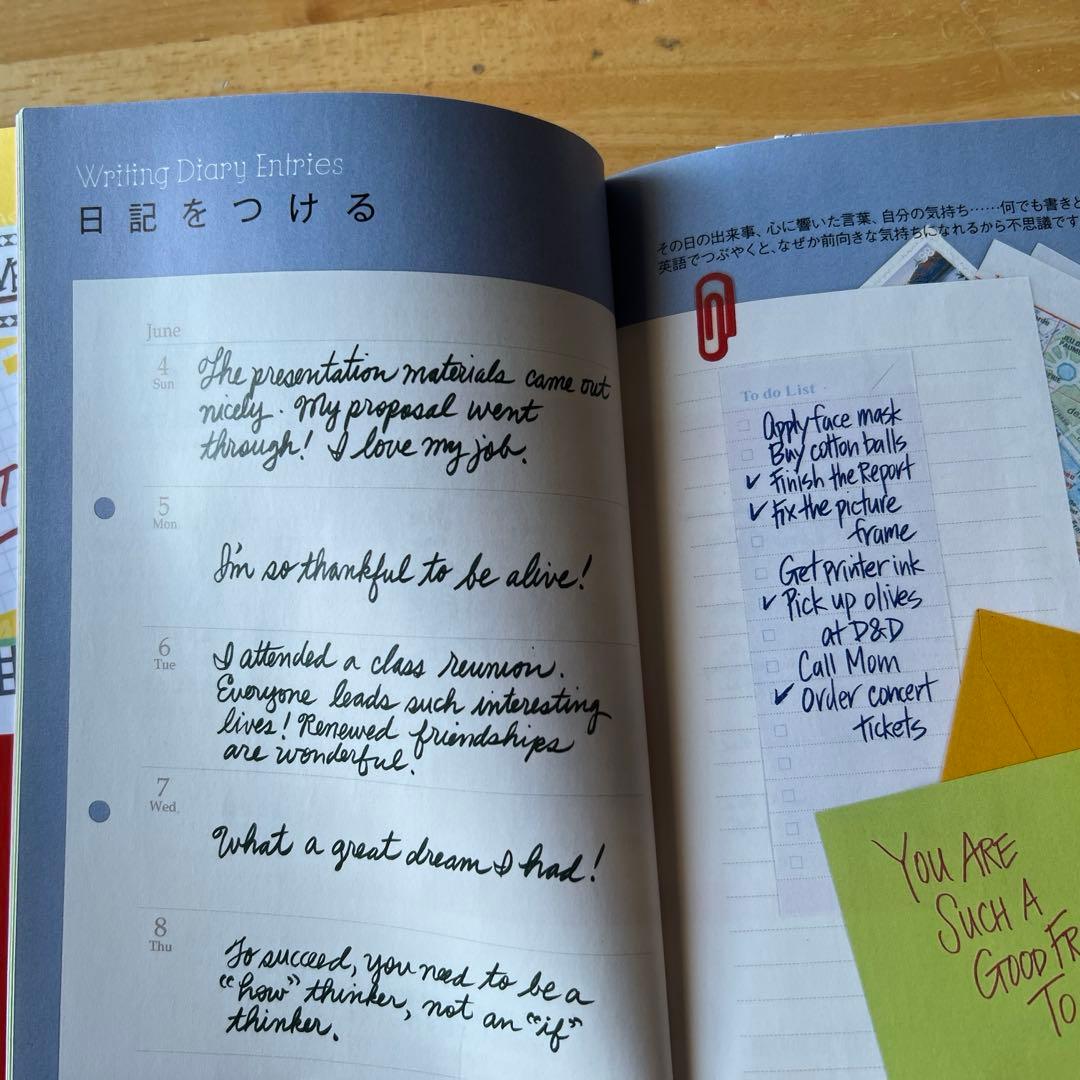 Writing Diary Entries
日記をつける
June
4
Sun
The presentation materials came out
nicely. My proposal went
through! I love my job.
5
Mon
I'm so thankful to be alive!
6
Tue
I attended a class reunion.
Everyone leads such interesting
lives! Renewed friendships
are wonderful.
7
Wed
What a great dream I had!
8
Thu
To succeed, you need to be a
"how" thinker, not an "if"
thinker.
その日の出来事、心に響いた言葉、自分の気持ち……何でも書きと
英語でつぶやくと、なぜか前向きな気持ちになれるから不思議です
To do List
Apply face mask
Buy cotton balls
Finish the Report
Fix the picture
frame
Get printer ink
Pick up olives
at D&D
Call Mom
Order concert
tickets
YOU ARE
SUCH A
GOOD FR
TO